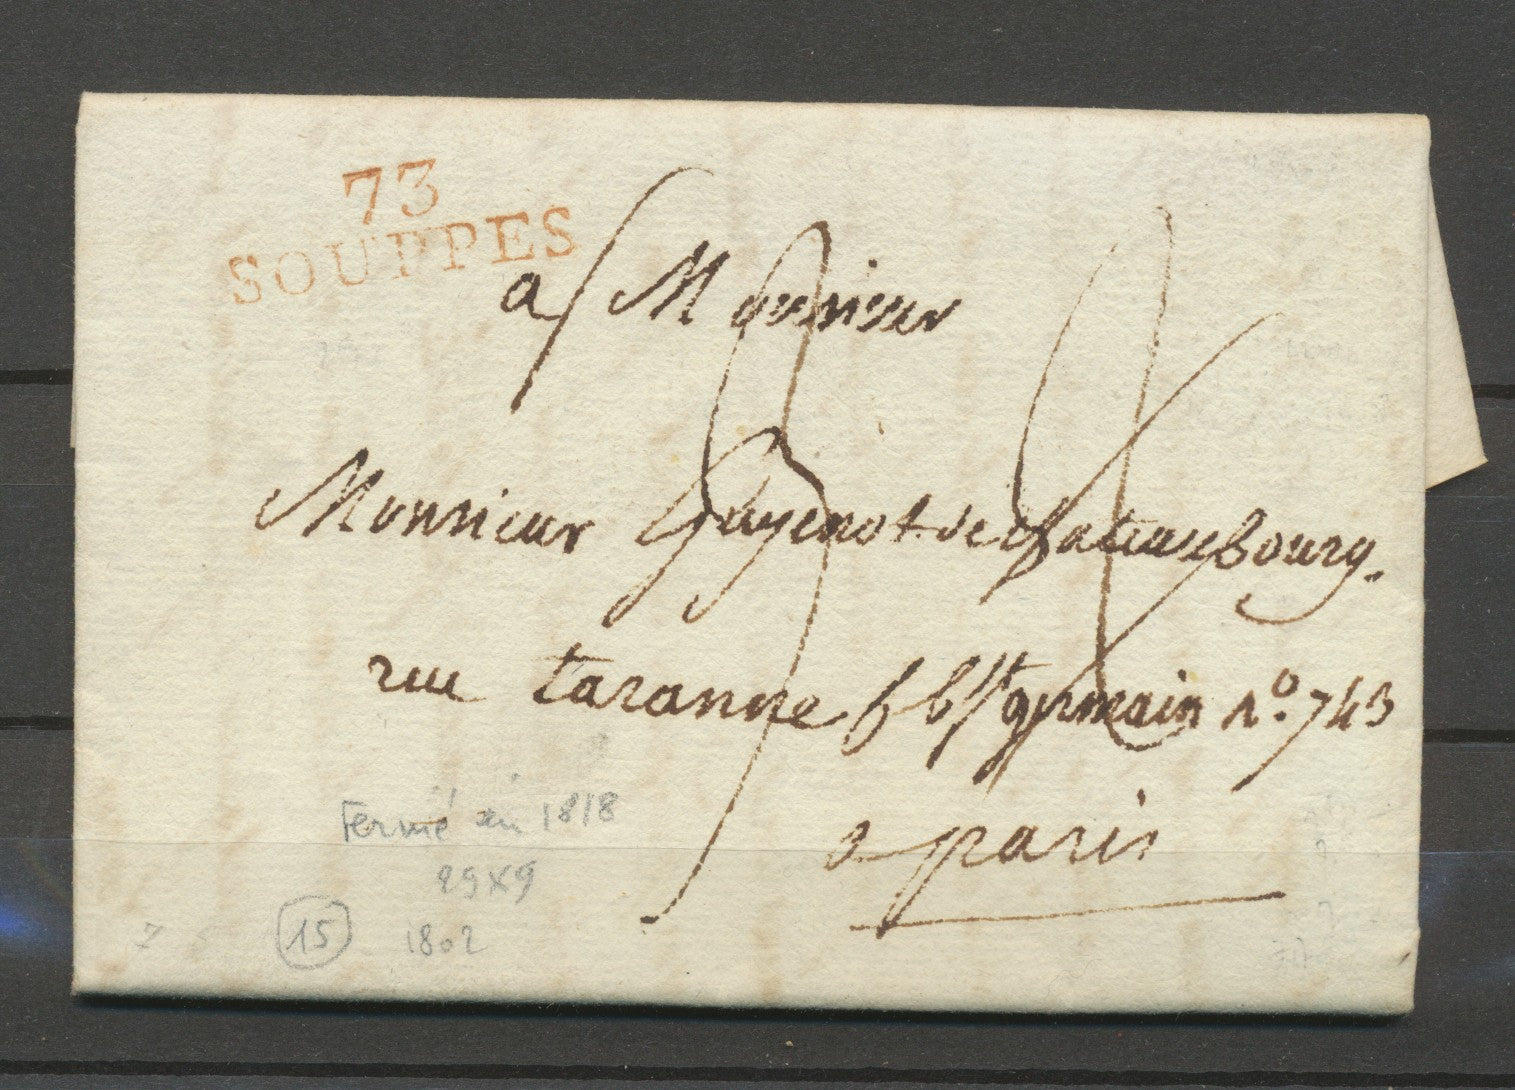 73
SOUPPES
a Monsieur
Monsieur Guyenot de chateaubourg.
rue taranne f bg st germain no. 743
a paris
Fermé en 1818
29x9
15 1802